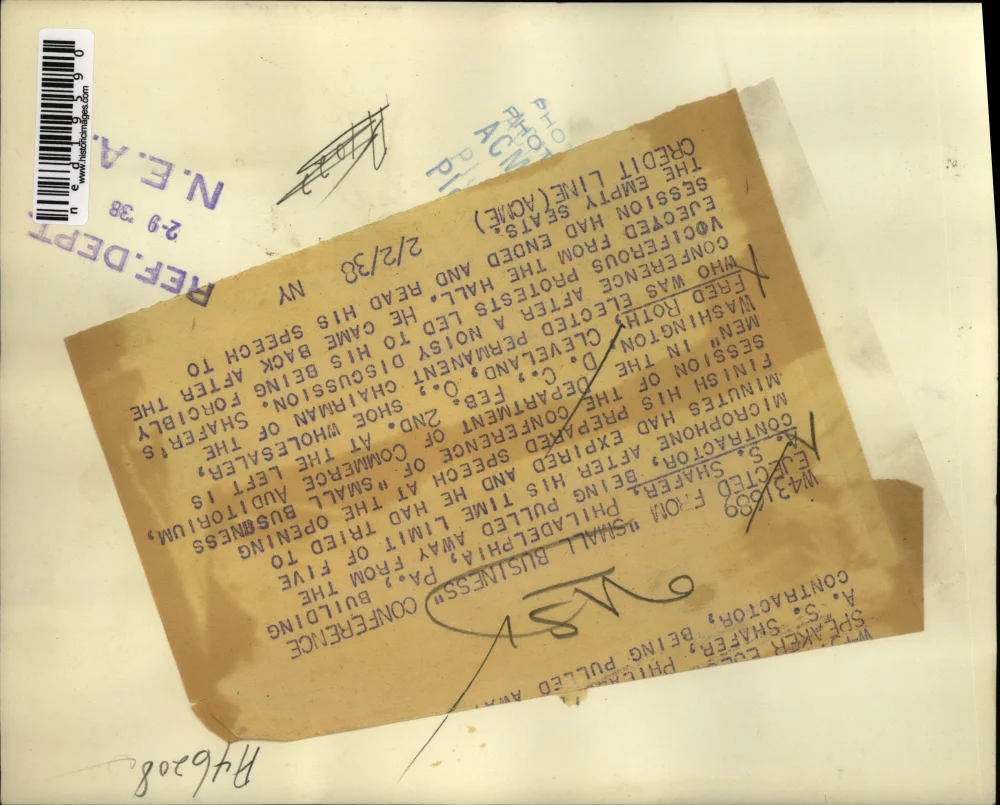 SPEAKER
A. S. SHAFER,
CONTRACTOR, BEING PULLED AWAY
W421689
EJECTED FROM "SMALL BUSINESS" CONFERENCE
A. S. SHAFER, PHILADELPHIA, PA., BUILDING
CONTRACTOR, BEING PULLED AWAY FROM THE
MICROPHONE AFTER HIS TIME LIMIT OF FIVE
MINUTES HAD EXPIRED AND HE HAD TRIED TO
FINISH HIS PREPARED SPEECH AT THE OPENING
SESSION OF THE CONFERENCE OF "SMALL BUSINESS
MEN" IN THE DEPARTMENT OF COMMERCE AUDITORIUM,
WASHINGTON D. C., FEB. 2ND. AT THE LEFT IS
FRED ROTH, CLEVELAND, O. SHOE WHOLESALER,
WHO WAS ELECTED PERMANENT CHAIRMAN OF THE
CONFERENCE AFTER A NOISY DISCUSSION. SHAFER'S
VOCIFEROUS PROTESTS LED TO HIS BEING FORCIBLY
EJECTED FROM THE HALL. HE CAME BACK AFTER THE
SESSION HAD ENDED AND READ HIS SPEECH TO
THE EMPTY SEATS.
CREDIT LINE (ACME) NY 2/2/38
REF. DEPT.
2-9 '38
N.E.A.
ACM
www.historicimages.com
ned19590
A46208